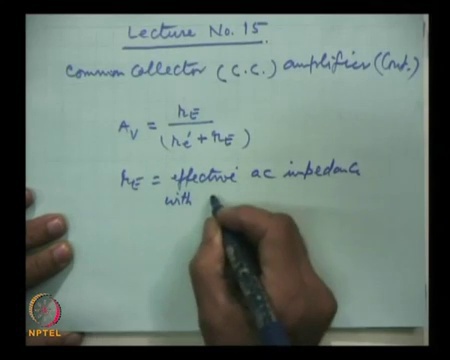 Lecture No. 15.
Common Collector (C.C.) amplifier (Cont.)
A_V = r_E / (r_e' + r_E)
r_E = effective ac impedance
with
NPTEL